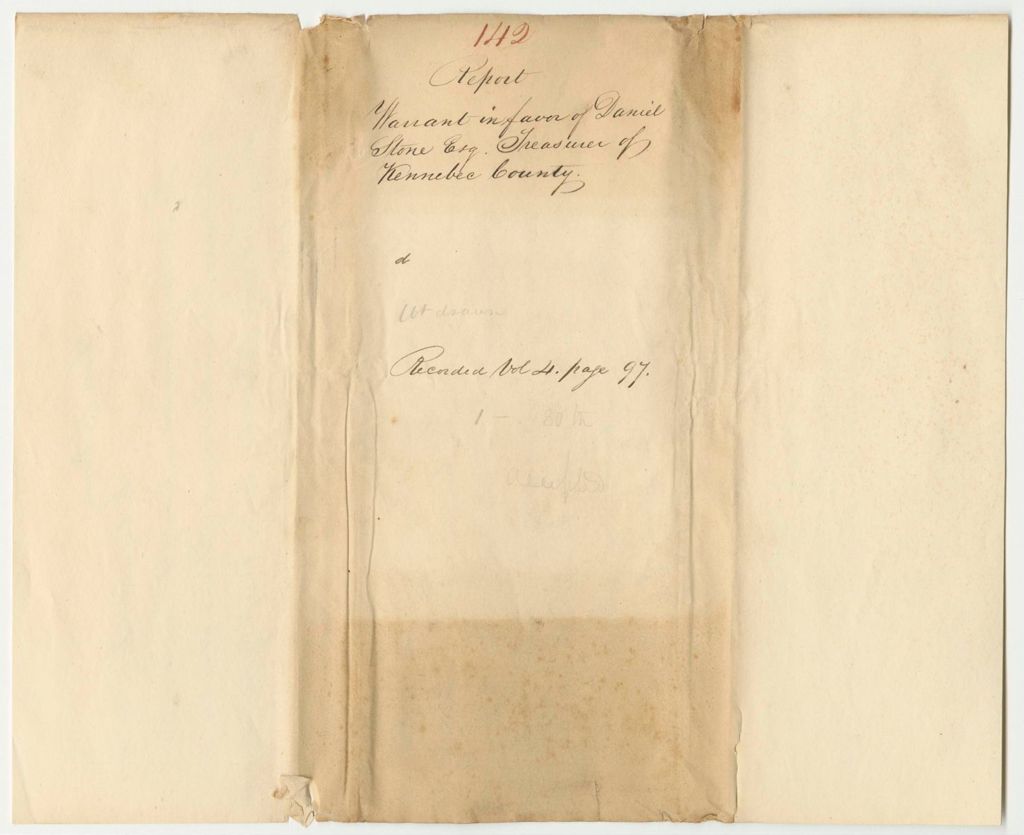 142
Report
Warrant in favor of Daniel
Stone Esq. Treasurer of
Kennebec County.
d
Recorded Vol 4. page 97.
accepted